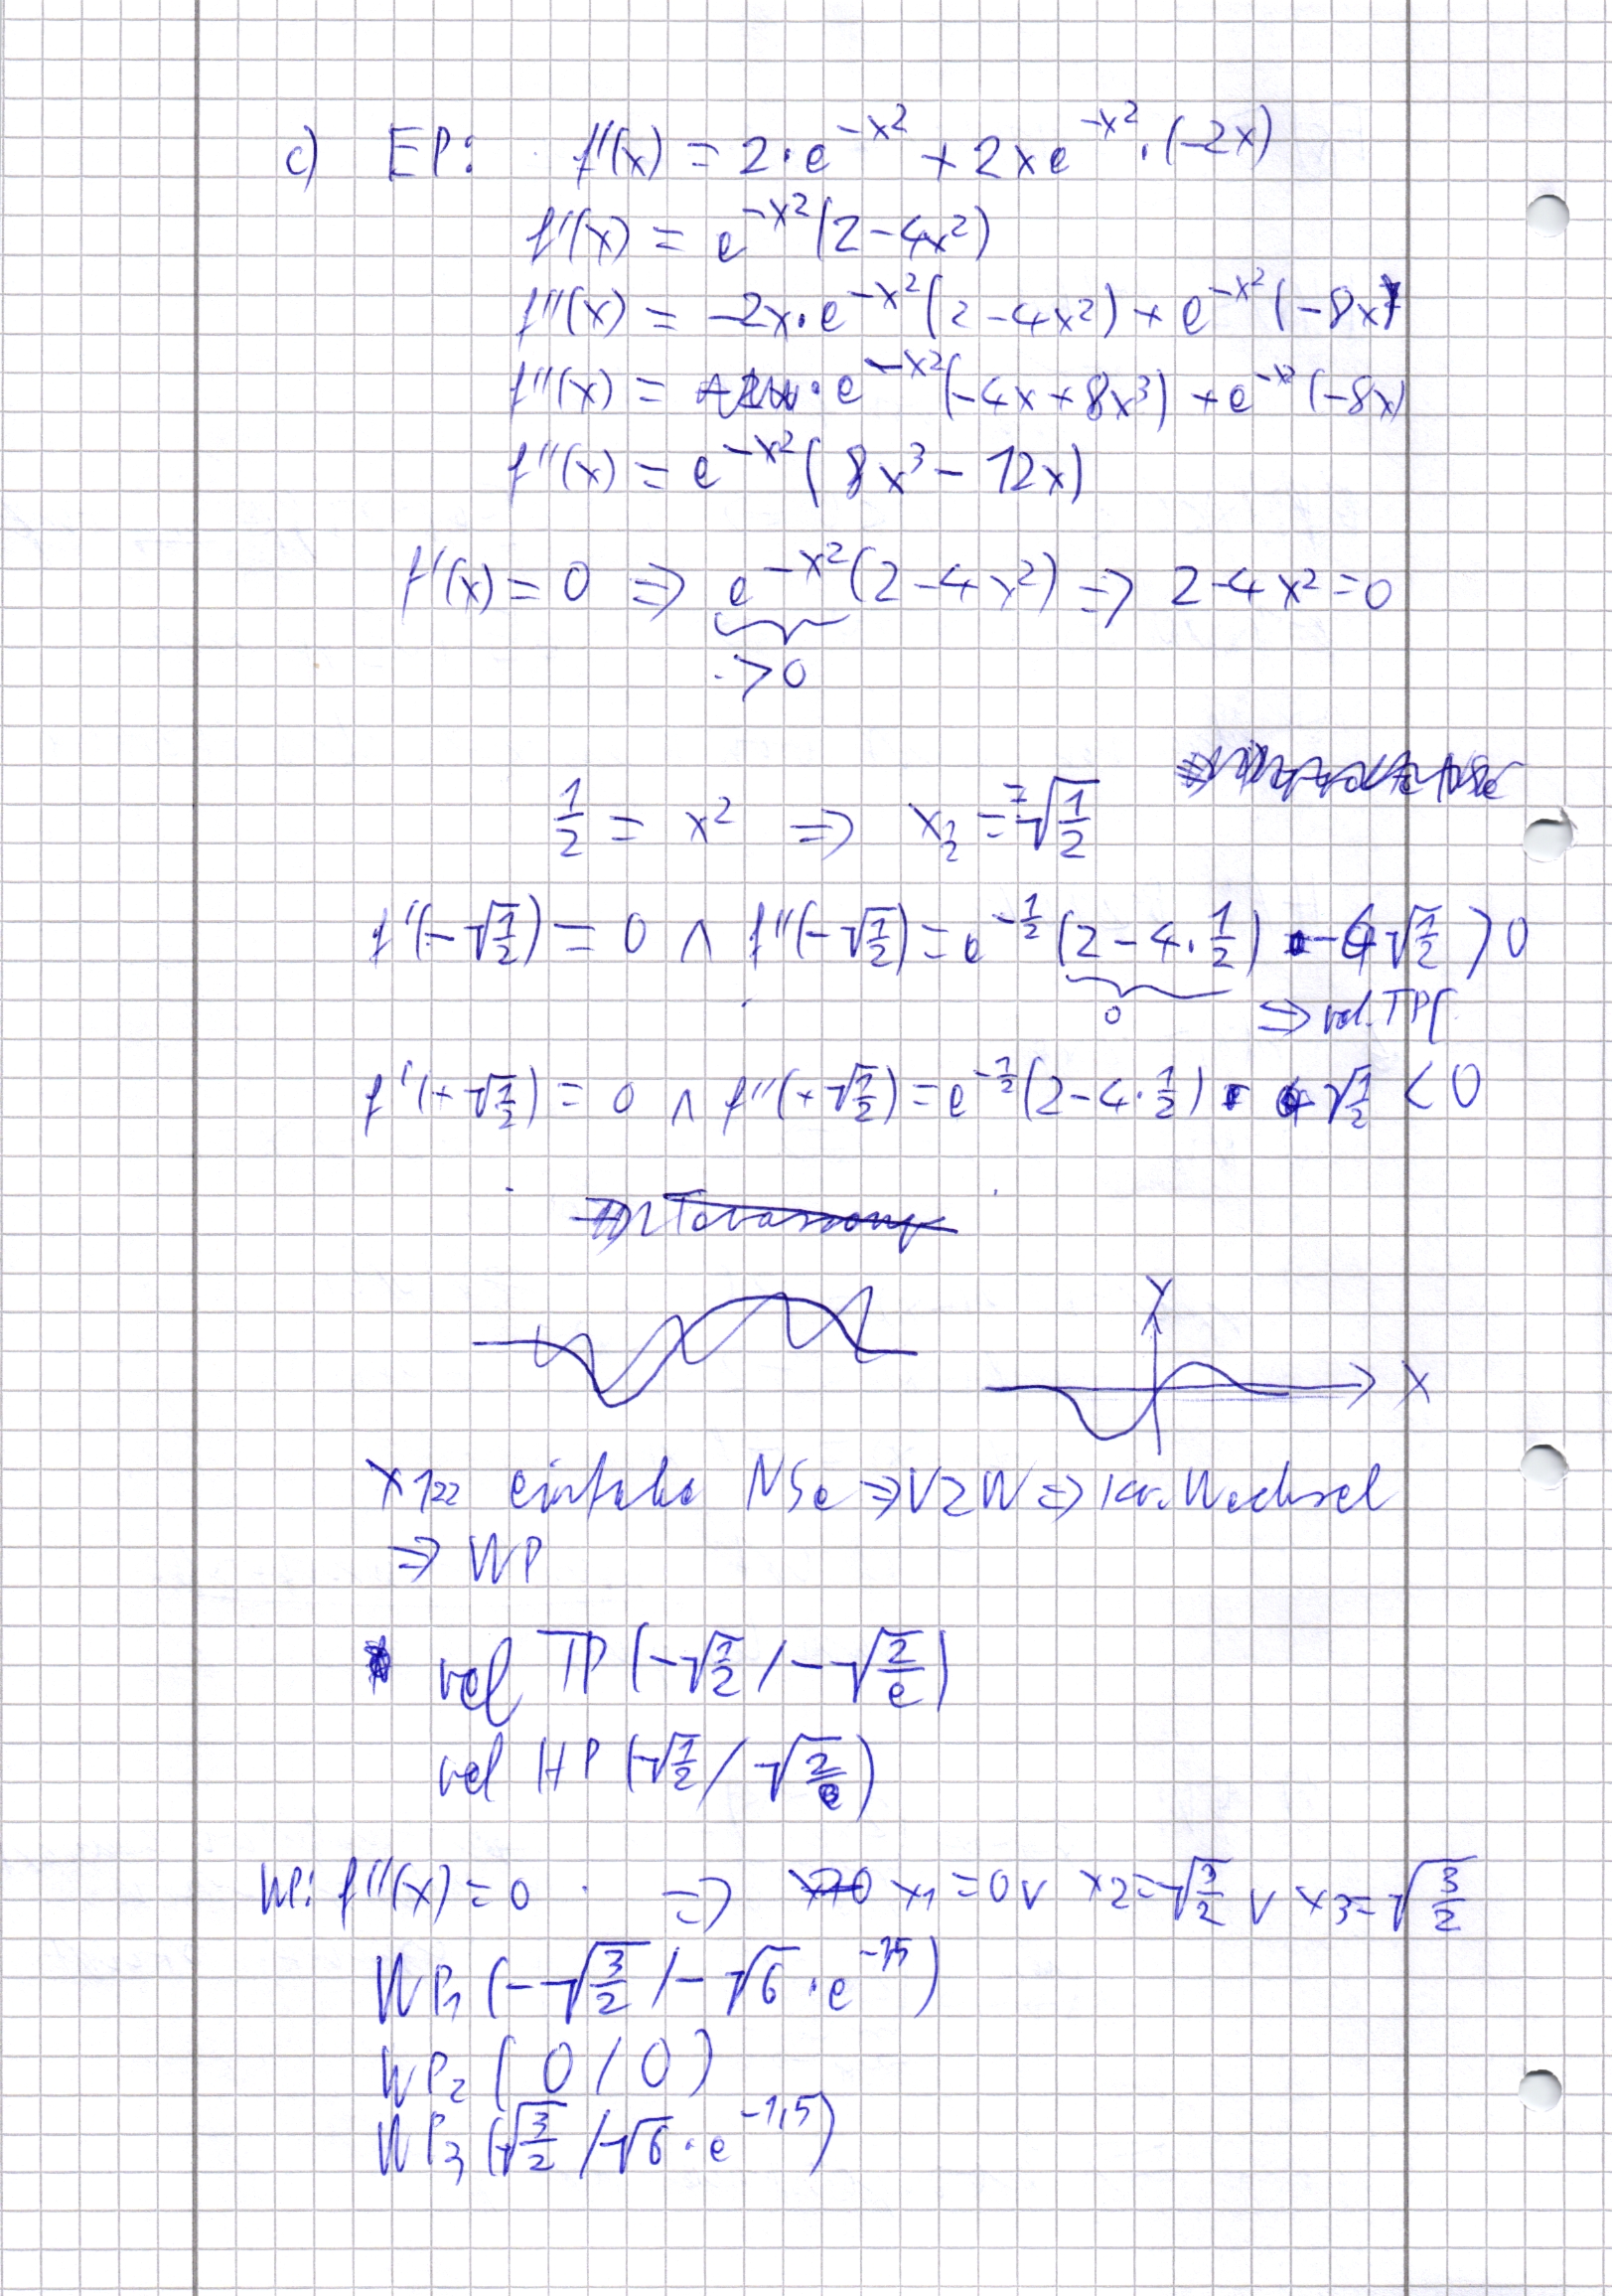 c) EP: f'(x) = 2·e^(-x²) + 2xe^(-x²)·(-2x)
f'(x) = e^(-x²)(2-4x²)
f''(x) = -2x·e^(-x²)(2-4x²) + e^(-x²)(-8x)
f''(x) = ·e^(-x²)(-4x+8x³) + e^(-x²)(-8x)
f''(x) = e^(-x²)(8x³-12x)
f'(x) = 0 ⇒ e^(-x²)(2-4x²) ⇒ 2-4x²=0
>0
1/2 = x² ⇒ x_(1/2) = ∓√(1/2)
f'(-√(1/2)) = 0 ∧ f''(-√(1/2)) = e^(-1/2)(2-4·1/2) √(1/2) > 0
0 ⇒ rel. TP
f'(+√(1/2)) = 0 ∧ f''(+√(1/2)) = e^(-1/2)(2-4·1/2) √(1/2) < 0
y
x
einfache NSe ⇒ VZW ⇒ Kr. Wechsel
⇒ WP
rel TP (-√(1/2) / -√(2/e))
rel HP (√(1/2) / √(2/e))
WP: f''(x) = 0 ⇒ x1 = 0 ∨ x2=√(3/2) ∨ x3=√(3/2)
WP1 (-√(3/2) / -√6·e^(-1,5))
WP2 (0 / 0)
WP3 (√(3/2) / √6·e^(-1,5))